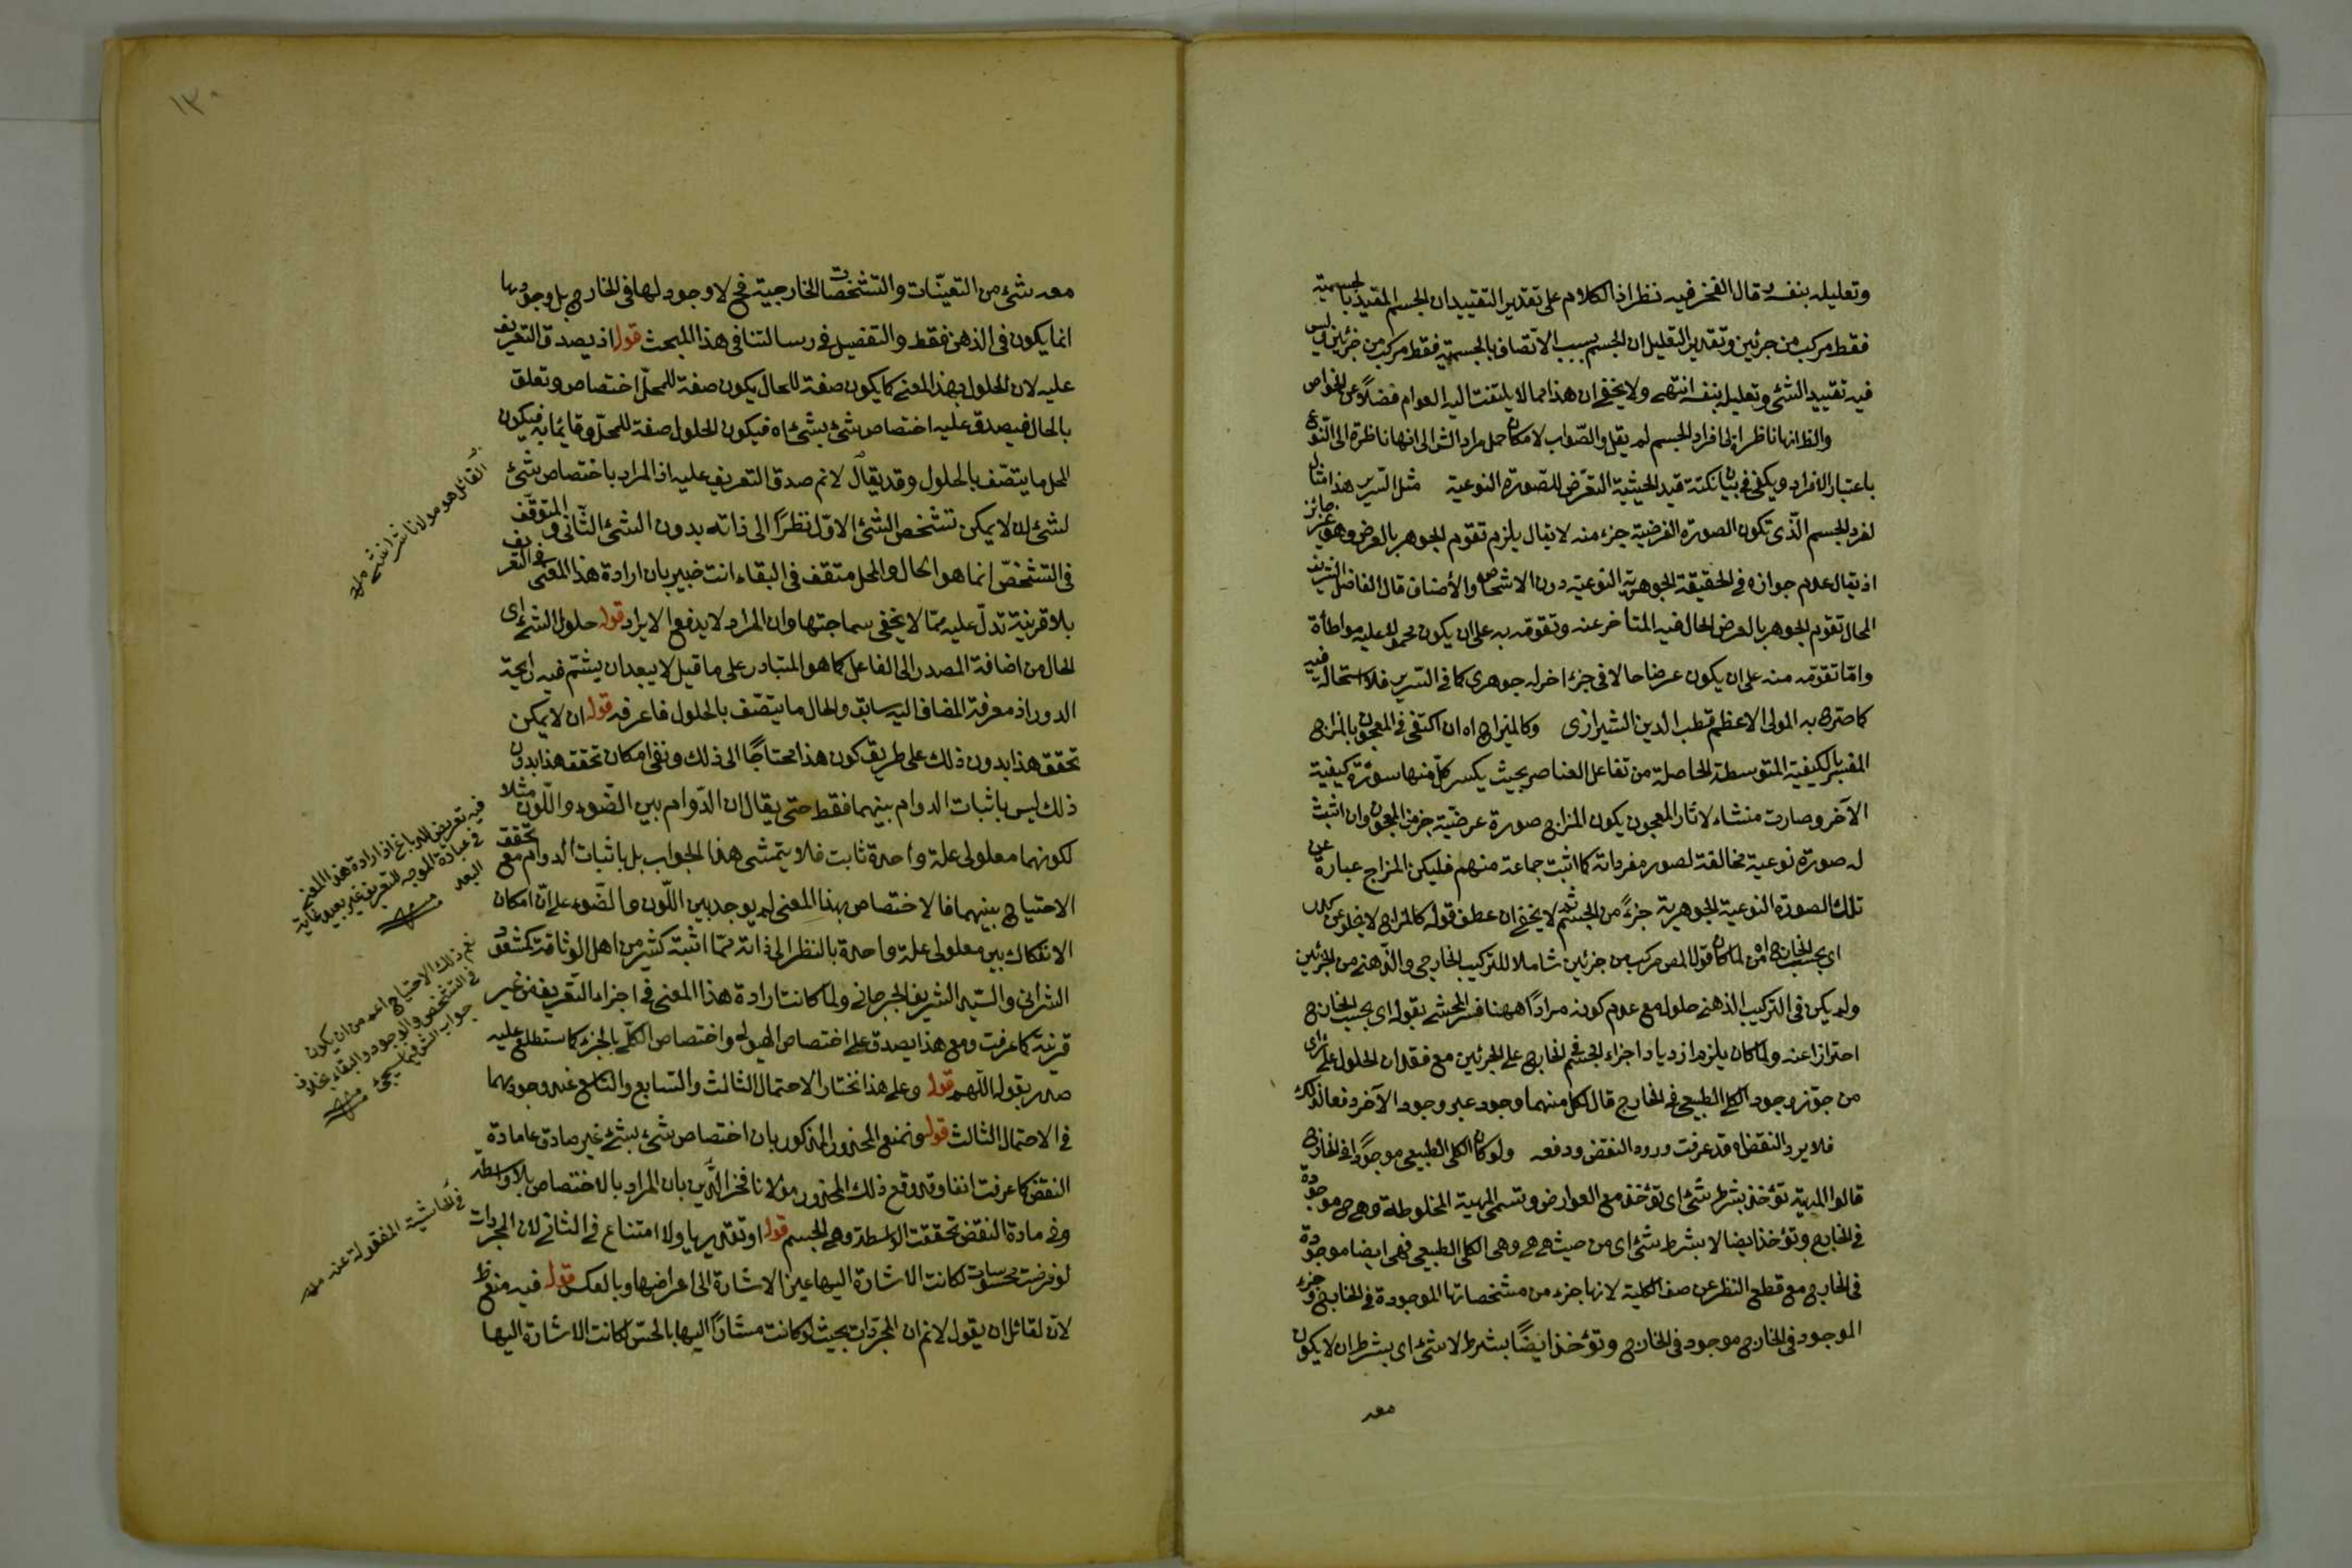 وتعليله بنفسه وقال الفخر فيه نظر اذ الكلام على تقدير التقييد ان الجسم المقيد بالجسمية
فقط مركب من جزئين وتقدير التعليل ان الجسم بسبب الاتصاف بالجسمية فقط مركب من جزئين ليس
فيه تقييد الشئ وتعليله بنفسه انتهى ولا يخفى ان هذا مما لا يلتفت اليه العوام فضلاً عن الخواص
والظ انها ناظرة الى افراد الجسم لم يقل والصواب لامكان حمل مراد الش الى انها ناظرة الى النوع
باعتبار الافراد ويكفى فى بيان نكتة قيد الحيثية التعرض للصورة النوعية مثل السرير هذا مثال
لفرد الجسم الذى تكون الصورة العرضية جزء منه لا يقال يلزم تقوم الجوهر بالعرض وهو غير جائز
اذ يقال عدم جوازه فى الحقيقة الجوهرية النوعية دون الاشخاص والأصناف قال الفاضل الشريف
المحال تقوم الجوهر بالعرض الحال فيه المتأخر عنه وتقومه به على ان يكون محمولا عليه مواطأة
وامّا تقومه منه على ان يكون عرضا حالا فى جزء اخر له جوهرى كما فى السرير فلا استحالة فيه
كما صرح به المولى الاعظم قطب الدين الشيرازى وكالمزاج اه ان اكتفى فى المعجون بالمزاج
المفسر بالكيفية المتوسطة الحاصلة من تفاعل العناصر بحيث يكسر كل منها سورة كيفية
الآخر وصارت منشاء لاثار المعجون يكون المزاج صورة عرضية جزء من المعجون وان اثبت
له صورة نوعية مخالفة لصور مفرداته كما اثبت جماعة منهم فليكن المزاج عبارة عن
تلك الصورة النوعية الجوهرية جزءً من الجسم ثم لا يخفى ان عطف قوله كالمزاج لا يخلو عن
اى بحسب الخارج اه لما كان قول المص مركب من جزئين شاملا للتركيب الخارجى والذهنى من الجزئين
ولم يكن فى التركيب الذهنى حلول مع عدم كونه مراداً ههنا فسر المحشى بقوله اى بحسب الخارج
احترازا عنه ولما كان يلزم ازدياد اجزاء الجسم فى الخارج على الجزئين مع فقدان الحلول على رأى
من جوّز وجود الكلى الطبيعى فى الخارج قال لكل منهما وجود غير وجود الآخر دفعا لذلك
فلا يرد النقض اه قد عرفت ورود النقض ودفعه ولو كان الكلى الطبيعى موجوداً فى الخارج
قالوا المهية تؤخذ بشرط شئ اى تؤخذ مع العوارض وتسمى المهية المخلوطة وهى ح موجودة
فى الخارج وتؤخذ ايضا لا بشرط شئ اى من حيث هى هى وهى الكلى الطبيعى فهى ايضا موجودة
فى الخارج مع قطع النظر عن صفة الكلية لانها جزء من مشخصاتها الموجودة فى الخارج وجزء
الموجود فى الخارج موجود فى الخارج وتؤخذ ايضًا بشرط لا شئ اى بشرط ان لا يكون
معه
١٣٠
معه شئ من التعينّات والتشخصات الخارجية فح لا وجود لها فى الخارج بل وجودها
انما يكون فى الذهن فقط والتفصيل فى رسالتنا فى هذا المبحث قوله اذ يصدق التعريف
عليه لان الحلول بهذا المعنى كما يكون صفة للحال يكون صفة للمحلّ اختصاص وتعلق
بالحال فيصدق عليه اختصاص شئ بشئ اه فيكون الحلول صفة للمحلّ وقائما به فيكون
المحل ما يتصّف بالحلول وقد يقال لانم صدق التعريف عليه اذ المراد باختصاص شئ
لشئ ان لا يمكن تشخص الشئ الاوّل نظرًا الى ذاته بدون الشئ الثانى و المتوقّف
فى التشخصّ انما هو الحال والمحل متقف فى البقاء انت خبير بان ارادة هذا المعنى فى التعريف
بلا قرينة تدلّ عليه ممّا لا يخفى سماجتها وان المراد لا يدفع الايراد قوله حلول الشئ اى
الحال من اضافة المصدر الى الفاعل كما هو المتبادر على ما قيل لا يبعد ان يشتم فيه رايحة
الدور اذ معرفة المضاف اليه سابق والحال ما يتصّف بالحلول فاعرفه قوله ان لا يمكن
تحقق هذا بدون ذلك على طريق كون هذا محتاجًا الى ذلك ونفى امكان تحقق هذا بدون
ذلك ليس باثبات الدوام بينهما فقط حتى يقال ان الدّوام بين الضّوء واللّون مثلا
لكونهما معلولى علة واحدة ثابت فلا يتمشى هذا الجواب بل باثبات الدوام مع تحقق
الاحتياج بينهما فالاختصاص بهذا المعنى لم يوجد بين اللّون والضّوء على انّ امكان
الانفكاك بين معلولى علة واحدة بالنظر الى ذاته ممّا اثبته كثير من اهل الوثاقة كمسعود
الشرانى والسيّد الشريف الجرجانى ولما كانت ارادة هذا المعنى فى اجزاء التعريف من غير
قرينة كما عرفت ومع هذا يصدق على اختصاص الهيولى واختصاص الكلّ بالجزء كما ستطلع عليه
صدر بقوله اللّهم قوله وعلى هذا نختار الاحتمال الثالث والسّابع والتاسع غير وجودهما
فى الاحتمال الثالث قوله ونمنع المحذور المذكور بان اختصاص شئ بشئ غير صادق على مادة
النقض كما عرفت انفا وقد دفع ذلك المحذور مولانا فخر الدّين بان المراد بالاختصاص بلا واسطة
وفى مادة النقض تحققت الواسطة وهى الجسم قوله او تقديريا ولا امتناع فى الثانى لان المجردات
لو فرضت محسوسات لكانت الاشارة اليها عين الاشارة الى اعراضها وبالعكس قوله فيه منع ظ
لانّ لقائل ان يقول لانم ان المجرّدات بحيث لو كانت مشارًا اليها بالحسّ لكانت الاشارة اليها
القائل هو مولانا
فيه تعريض للدباغ اذ ارادة هذا المعنى
فى عبارة الموجه للتعريف غير بعيد غاية
البعد منه
نعم ذلك الاحتياج اعم من ان يكون
فى التشخص والوجود والبقاء بخلاف
جواب الش فيما سيجئ منه
فى الحاشية المنقولة عنه منه